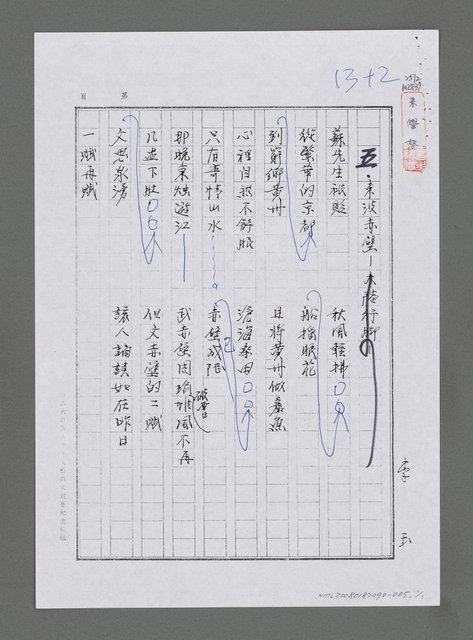 13+2
第 頁
五.東波赤壁—大陸行腳
李玉
蘇先生被貶
從繁華的京都
到窮鄉黃州
心裡自然不舒服
只有寄情山水
那晚秉燭遊江
几盞下肚
文思泉湧
一賦再賦
秋風輕拂
船搖眠花
且將黃州做嘉魚
滄海桑田
赤壁成陸
武赤壁周瑜雄風不再
但文赤壁的二賦
讓人論談如在昨日
NML20080182090-005, 1/1